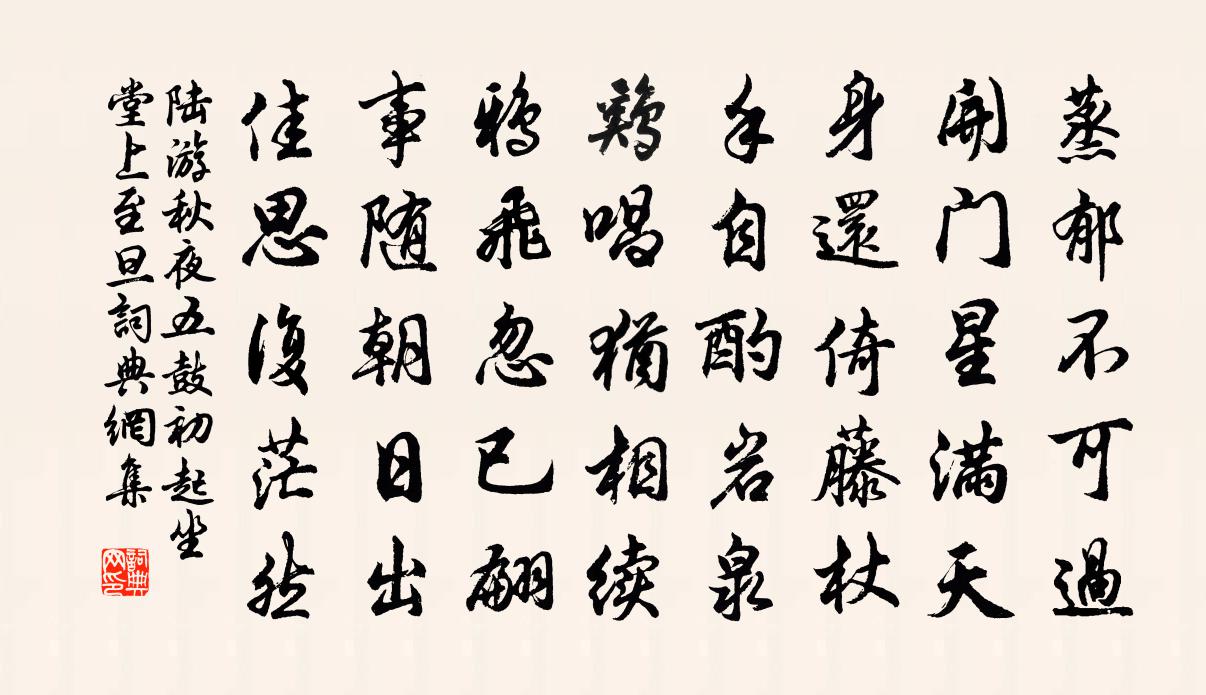 蒸郁不可過
開门星满天
身還倚藤杖
手自酌岩泉
鷄唱犹相续
鴉飛忽已翩
事随朝日出
佳思復茫然
陆游秋夜五鼓初起坐
堂上至旦詞典網集
詞典网印